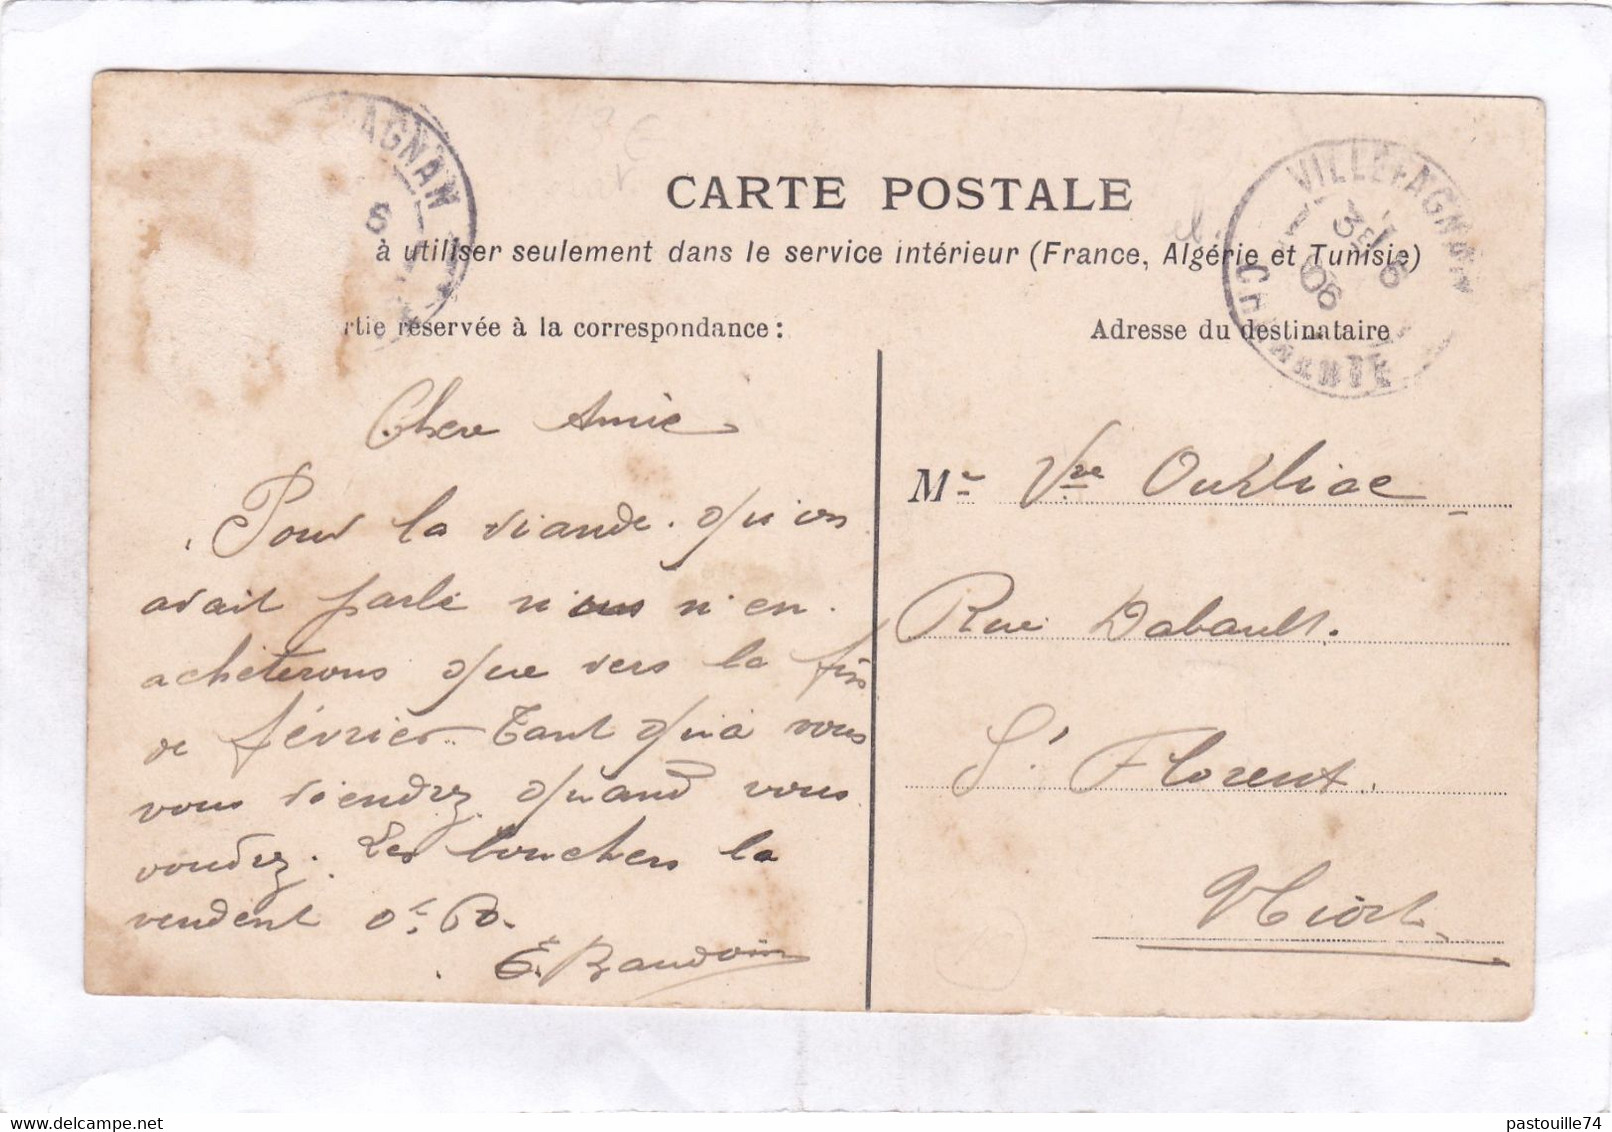 CARTE POSTALE
à utiliser seulement dans le service intérieur (France, Algérie et Tunisie)
rtie réservée à la correspondance :
Adresse du destinataire
AGNAN
6
VILLEFAGNAN
06
CHARENTE
Chere Amie
Pour la viande. qu'on
avait parlé nous n'en
achèterons que vers la fin
de février. Tant qu'à vous
vous viendrez quand vous
voudrez. Les bouchers la
vendent 0f. 60.
E. Baudoin
Me Vve Ourliac
Rue Dabault.
St Florent.
Niort
pastouille74